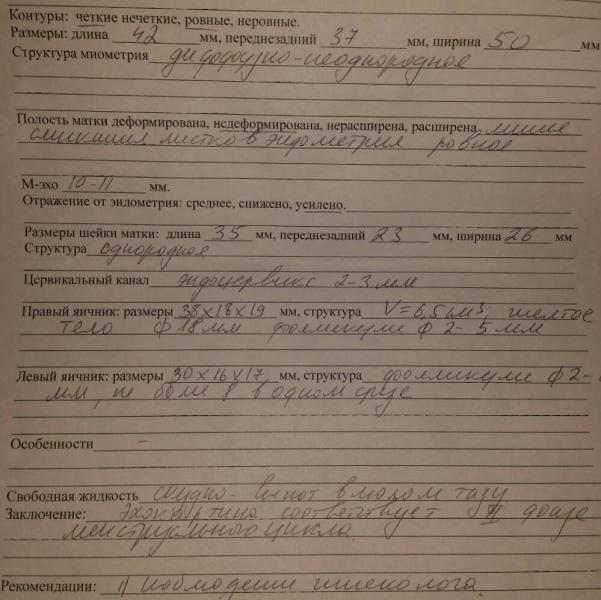 Контуры: четкие нечеткие, ровные, неровные.
Размеры: длина 42 мм, переднезадний 37 мм, ширина 50 мм
Структура миометрия диффузно-неоднородное
Полость матки деформирована, недеформирована, нерасширена, расширена, линия
смыкания листков эндометрия ровное
М-эхо 10-11 мм.
Отражение от эндометрия: среднее, снижено, усилено.
Размеры шейки матки: длина 35 мм, переднезадний 23 мм, ширина 26 мм
Структура однородное
Цервикальный канал эндоцервикс 2-3 мм
Правый яичник: размеры 38х18х19 мм, структура V=6,5 см³, желтое
тело ф 18 мм фолликулы ф 2-5 мм
Левый яичник: размеры 30х16х17 мм, структура фолликулы ф 2-
мм, не более 8 в одном срезе
Особенности –
Свободная жидкость скудно- выпот в малом тазу
Заключение: Эхокартина соответствует II фазе
менструального цикла.
Рекомендации: 1) наблюдение гинеколога.